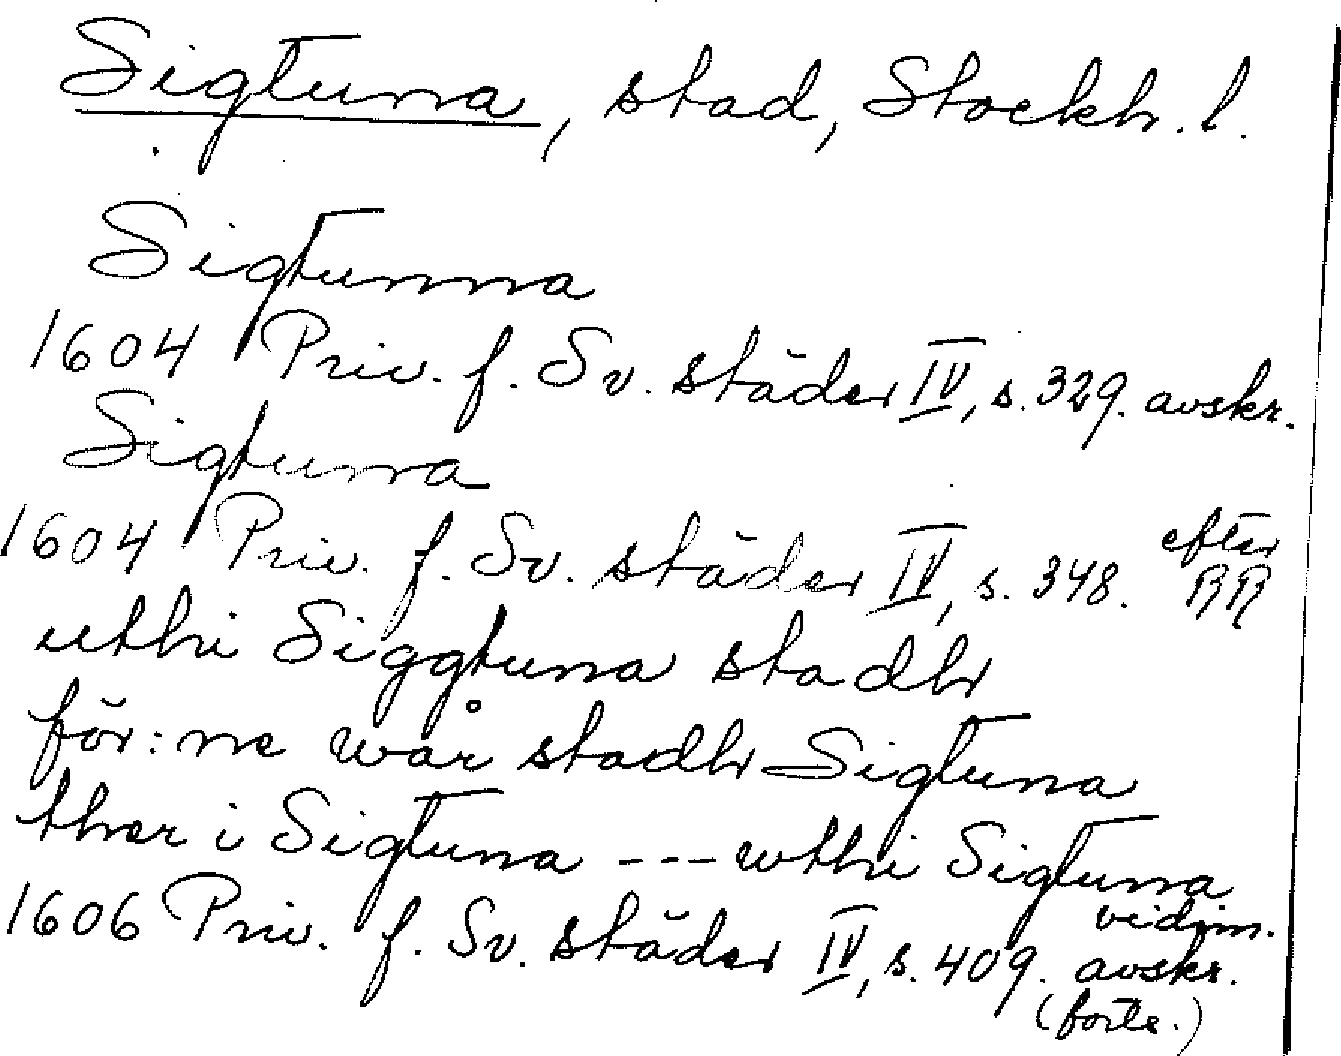 Sigtuna, stad, Stockh. l.
Sigtunna
1604 Priv. f. Sv. städer IV, s. 329. avskr.
Sigtuna
1604 Priv. f. Sv. städer IV, s. 348. efter RR
uthi Siggtuna stadh
för:ne wår stadh Sigtuna
ther i Sigtuna --- wthi Sigtuna
1606 Priv. f. Sv. städer IV, s. 409. vidim. avskr.
(forts.)